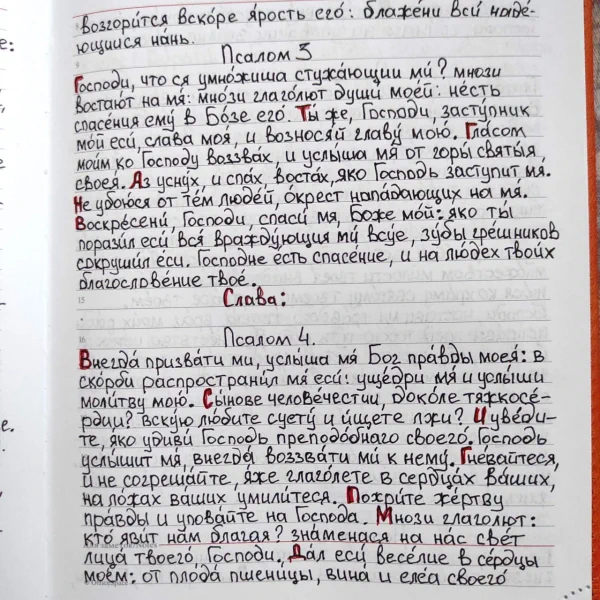 возгори́тся вско́ре я́рость его́: блаже́ни вси́ наде́-
ющиися на́нь.
Псалом 3
Го́споди, что ся умно́жиша стужа́ющии ми́? мно́зи
востаю́т на мя́: мно́зи глаго́лют души́ мое́й: не́сть
спасе́ния ему́ в Бо́зе его́. Ты́ же, Го́споди, засту́пник
мо́й еси́, сла́ва моя́, и вознося́й главу́ мою́. Гла́сом
мои́м ко Го́споду воззва́х, и услы́ша мя́ от горы́ святы́я
своея́. Аз усну́х, и спа́х, воста́х, яко Госпо́дь засту́пит мя.
Не убою́ся от те́м люде́й, о́крест напа́дающих на мя.
Воскресе́ни, Го́споди, спаси́ мя, Бо́же мо́й: яко ты́
порази́л еси́ вся́ вражду́ющия ми́ всу́е, зу́бы гре́шников
сокруши́л еси́. Госпо́дне есть спасе́ние, и на лю́дех твои́х
благослове́ние твое́.
Слава:
Псалом 4.
Внегда́ призва́ти ми, услы́ша мя́ Бог пра́вды моея́: в
ско́рби распространи́л мя́ еси́: уще́дри мя и услы́ши
моли́тву мою́. Сы́нове челове́честии, доко́ле тяжкосе́-
рдии? вску́ю лю́бите суету́ и и́щете лжи́? И уве́ди-
те, яко удиви́ Госпо́дь преподо́бнаго своего́. Госпо́дь
услы́шит мя́, внегда́ воззва́ти ми́ к нему́. Гне́вайтеся,
и не согреша́йте, я́же глаго́лете в сердца́х ва́ших,
на ло́жах ва́ших умили́теся. Пожри́те же́ртву
пра́вды и упова́йте на Го́спода. Мно́зи глаго́лют:
кто́ яви́т нам блага́я? зна́менася на на́с свет
лица́ твоего́, Го́споди. Дал еси́ весе́лие в се́рдцы
мое́м: от плода́ пшени́цы, вина́ и еле́а своего́